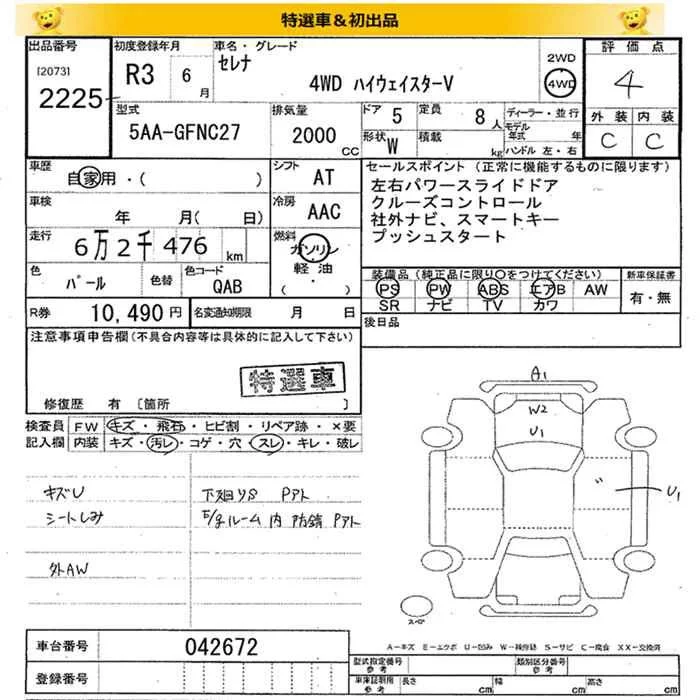 特選車&初出品
出品番号
[2073]
2225
初度登録年月
R3 6月
車名・グレード
セレナ
4WD ハイウェイスターV
2WD
4WD
評価点
4
外装 内装
C C
型式
5AA-GFNC27
排気量
2000
CC
ドア 5
定員 8人
形状 W
積載 kg
ディーラー・並行
モデル年式 年
ハンドル 左・右
車歴
自家用・( )
シフト
AT
車検
年 月( 日)
冷房
AAC
走行
6万2千476 km
燃料
ガソリン
軽油
( ・ )
色
パール
色替
色コード
QAB
R券
10,490円
名変通知期限 月 日
セールスポイント (正常に機能するものに限ります)
左右パワースライドドア
クルーズコントロール
社外ナビ、スマートキー
プッシュスタート
装備品(純正品に限り○をつけてください)
PS PW ABS エアB AW
SR ナビ TV カワ
新車保証書
有・無
後日品
注意事項申告欄(不具合内容等は具体的に記入して下さい)
特選車
修復歴 有 [箇所 ]
検査員記入欄
FW キズ・飛石・ヒビ割・リペア跡・×要
内装 キズ・汚レ・コゲ・穴・スレ・キレ・破レ
キズU
シートしみ
外AW
下廻りS Pアト
E/gルーム内 防錆 Pアト
A1
W2
U1
U1
スペア
A－キズ E－エクボ U－凹み W－補修跡 S－サビ C－腐食 XX－交換済
車台番号
042672
登録番号
型式指定番号 参考
類別区分番号 参考
車庫証明用 参考
長さ cm
幅 cm
高さ cm